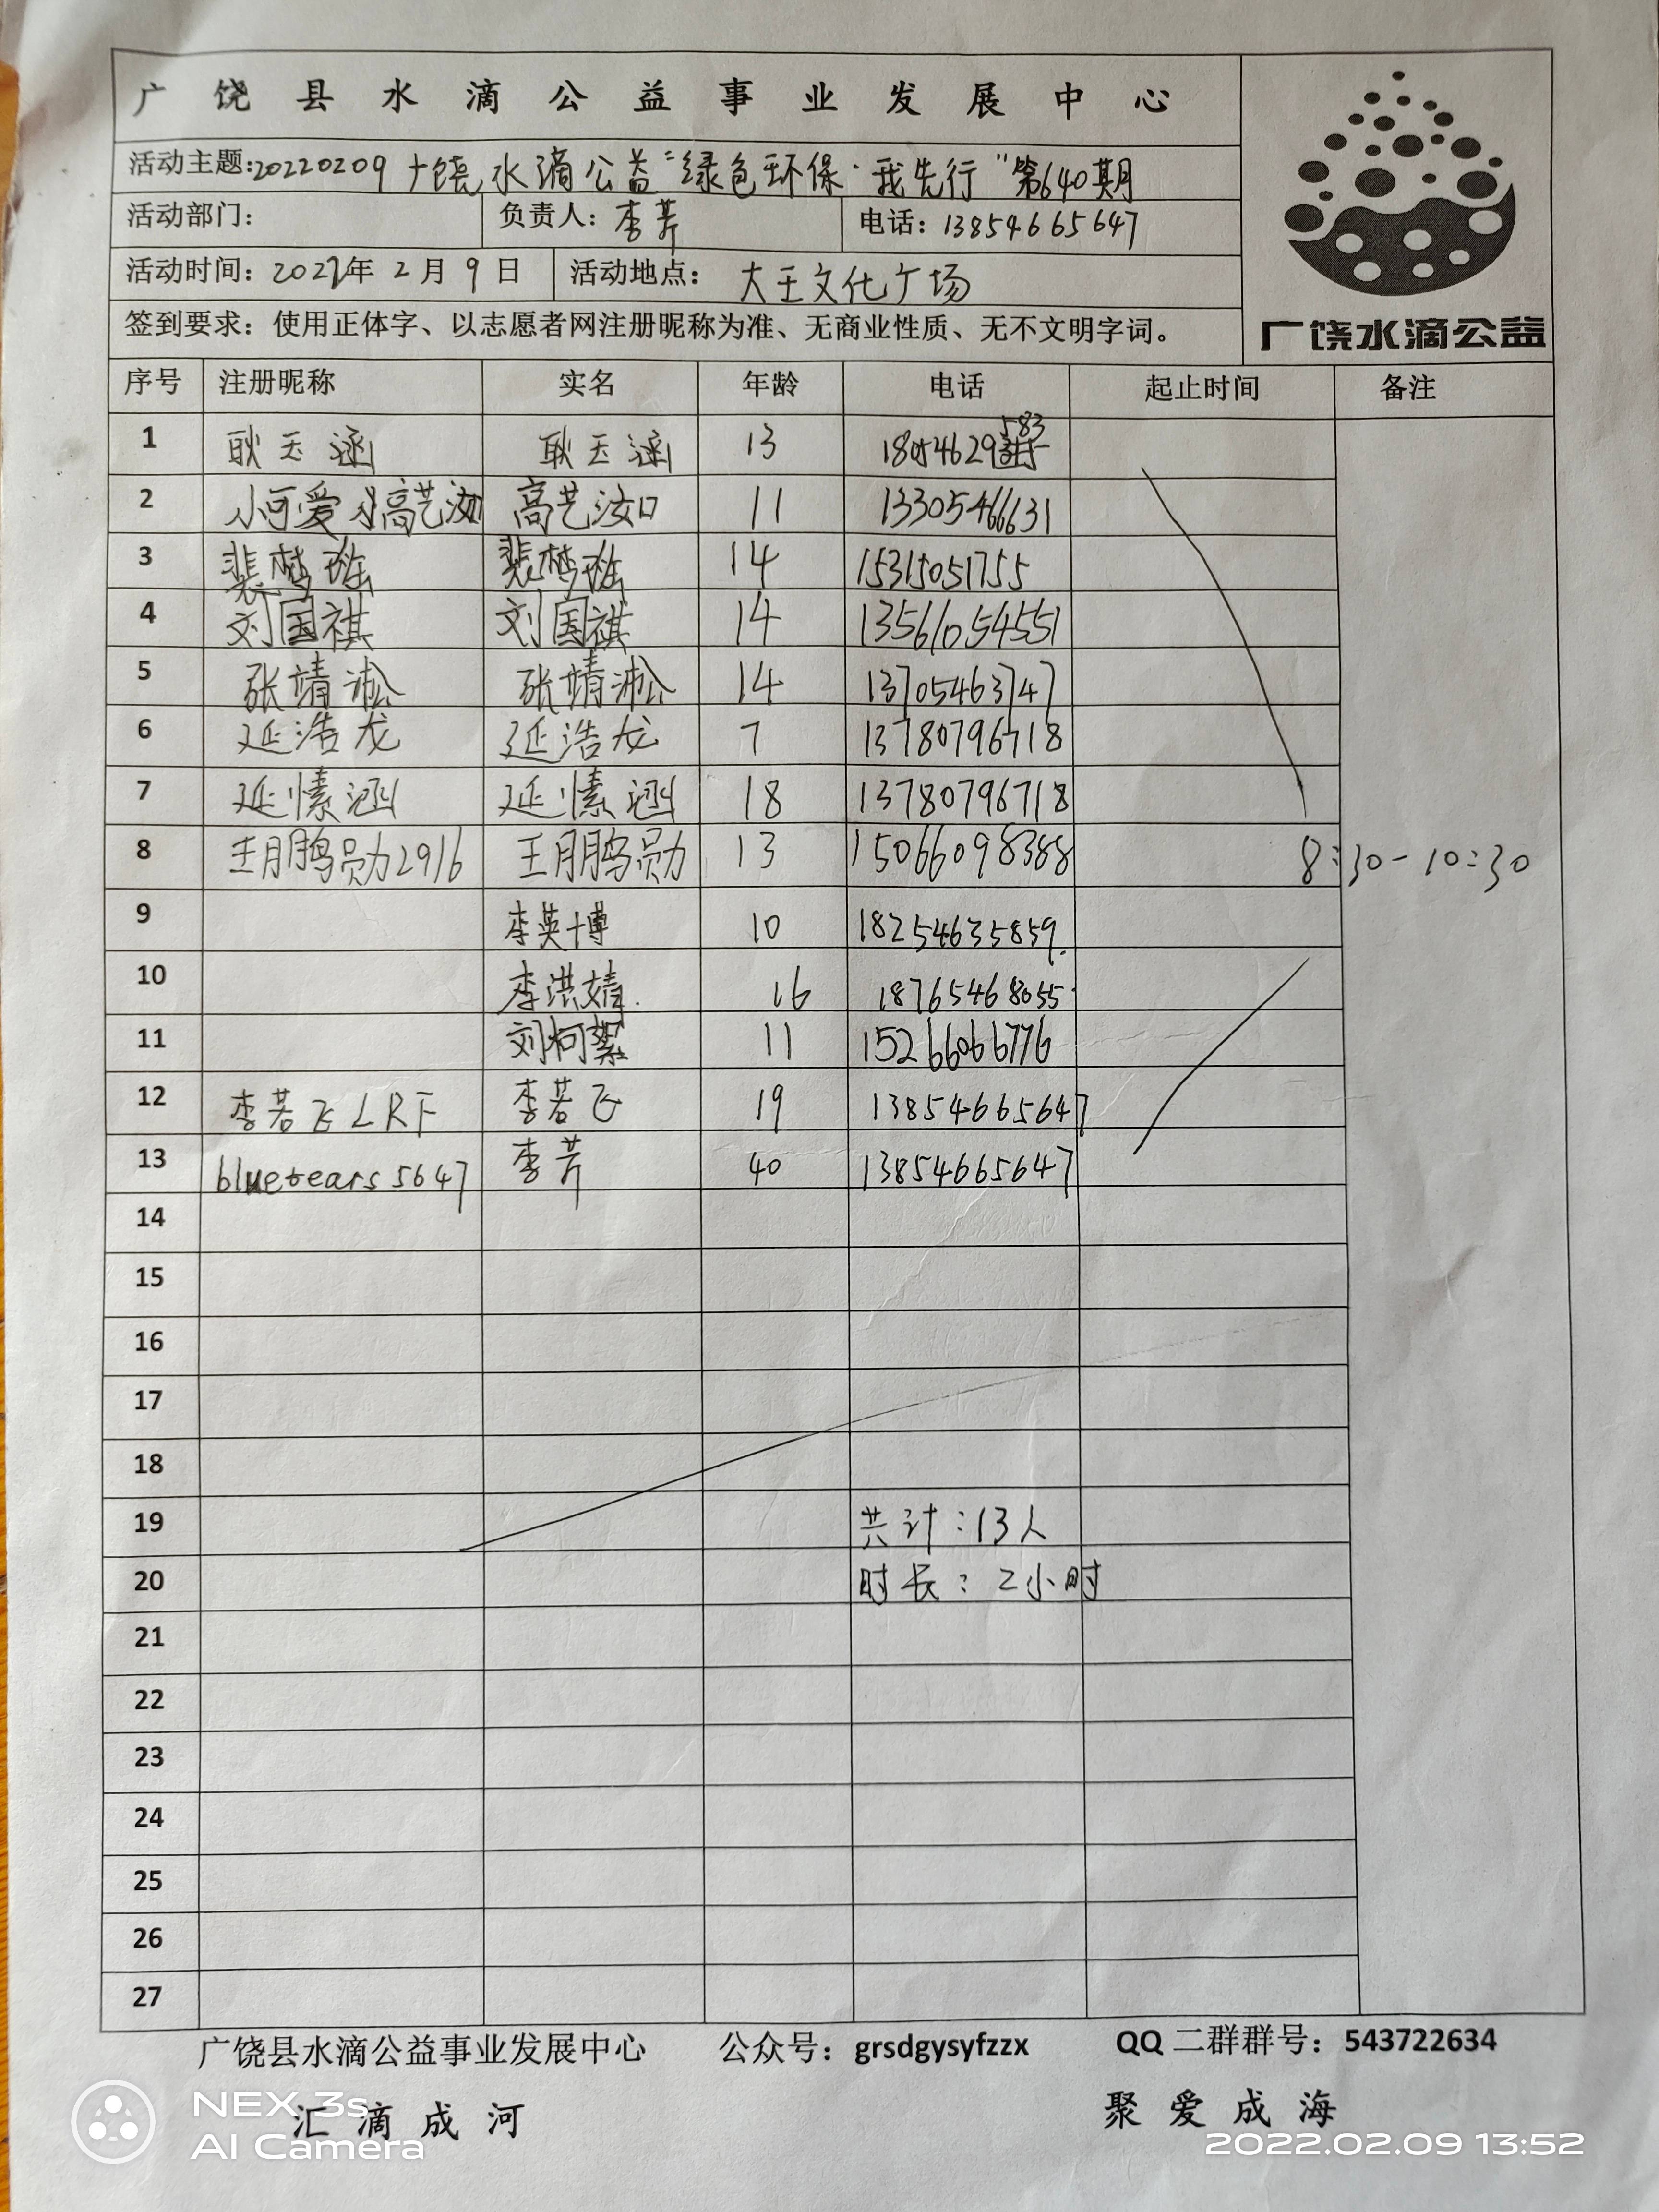 广饶县水滴公益事业发展中心
活动主题:20220209广饶水滴公益“绿色环保·我先行”第640期
活动部门: 负责人: 李芹 电话: 13854665647
活动时间: 2022年 2 月 9 日 活动地点: 大王文化广场
签到要求: 使用正体字、以志愿者网注册昵称为准、无商业性质、无不文明字词。
广饶水滴公益
序号 注册昵称 实名 年龄 电话 起止时间 备注
1 耿玉涵 耿玉涵 13 18054629583
2 小可爱 高艺汝 高艺汝 11 13305466631
3 裴梦瑶 裴梦瑶 14 15315051755
4 刘国祺 刘国祺 14 13561054551
5 张靖淞 张靖淞 14 13705463747
6 延浩龙 延浩龙 7 13780796718
7 延愫涵 延愫涵 18 13780796718
8 王鹏勋2916 王鹏勋 13 15066098388 8:30-10:30
9 李英博 10 18254635859
10 李洪婧 16 18765468055
11 刘柯絮 11 15266066776
12 李若飞LRF 李若飞 19 13854665647
13 bluetears5647 李芹 40 13854665647
14
15
16
17
18
19 共计:13人
20 时长:2小时
21
22
23
24
25
26
27
广饶县水滴公益事业发展中心 公众号: grsdgysyfzzx QQ 二群群号: 543722634
汇滴成河 聚爱成海
NEX 3s
AI Camera
2022.02.09 13:52